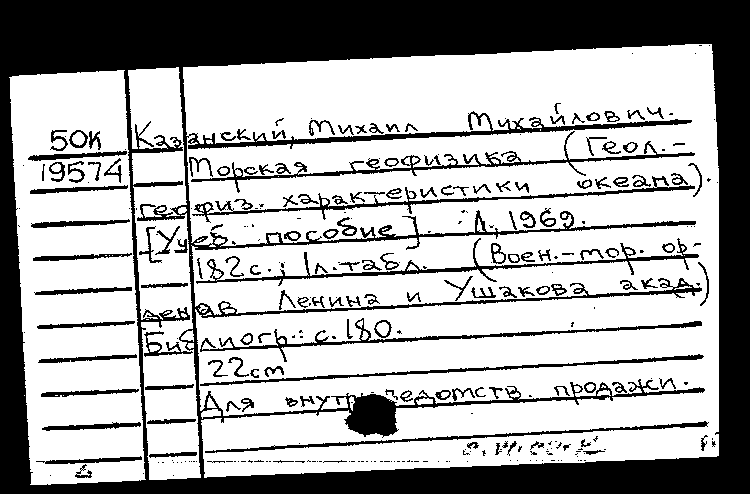 50К Казанский, Михаил Михайлович.
19574 Морская геофизика (Геол.-
геофиз. характеристики океана).
[Учеб. пособие] Л., 1969.
182с.; 1л.табл. (Воен.-мор. ор-
дена Ленина и Ушакова акад.)
Библиогр.: с.180.
22cm
Для внутриведомств. продажи.